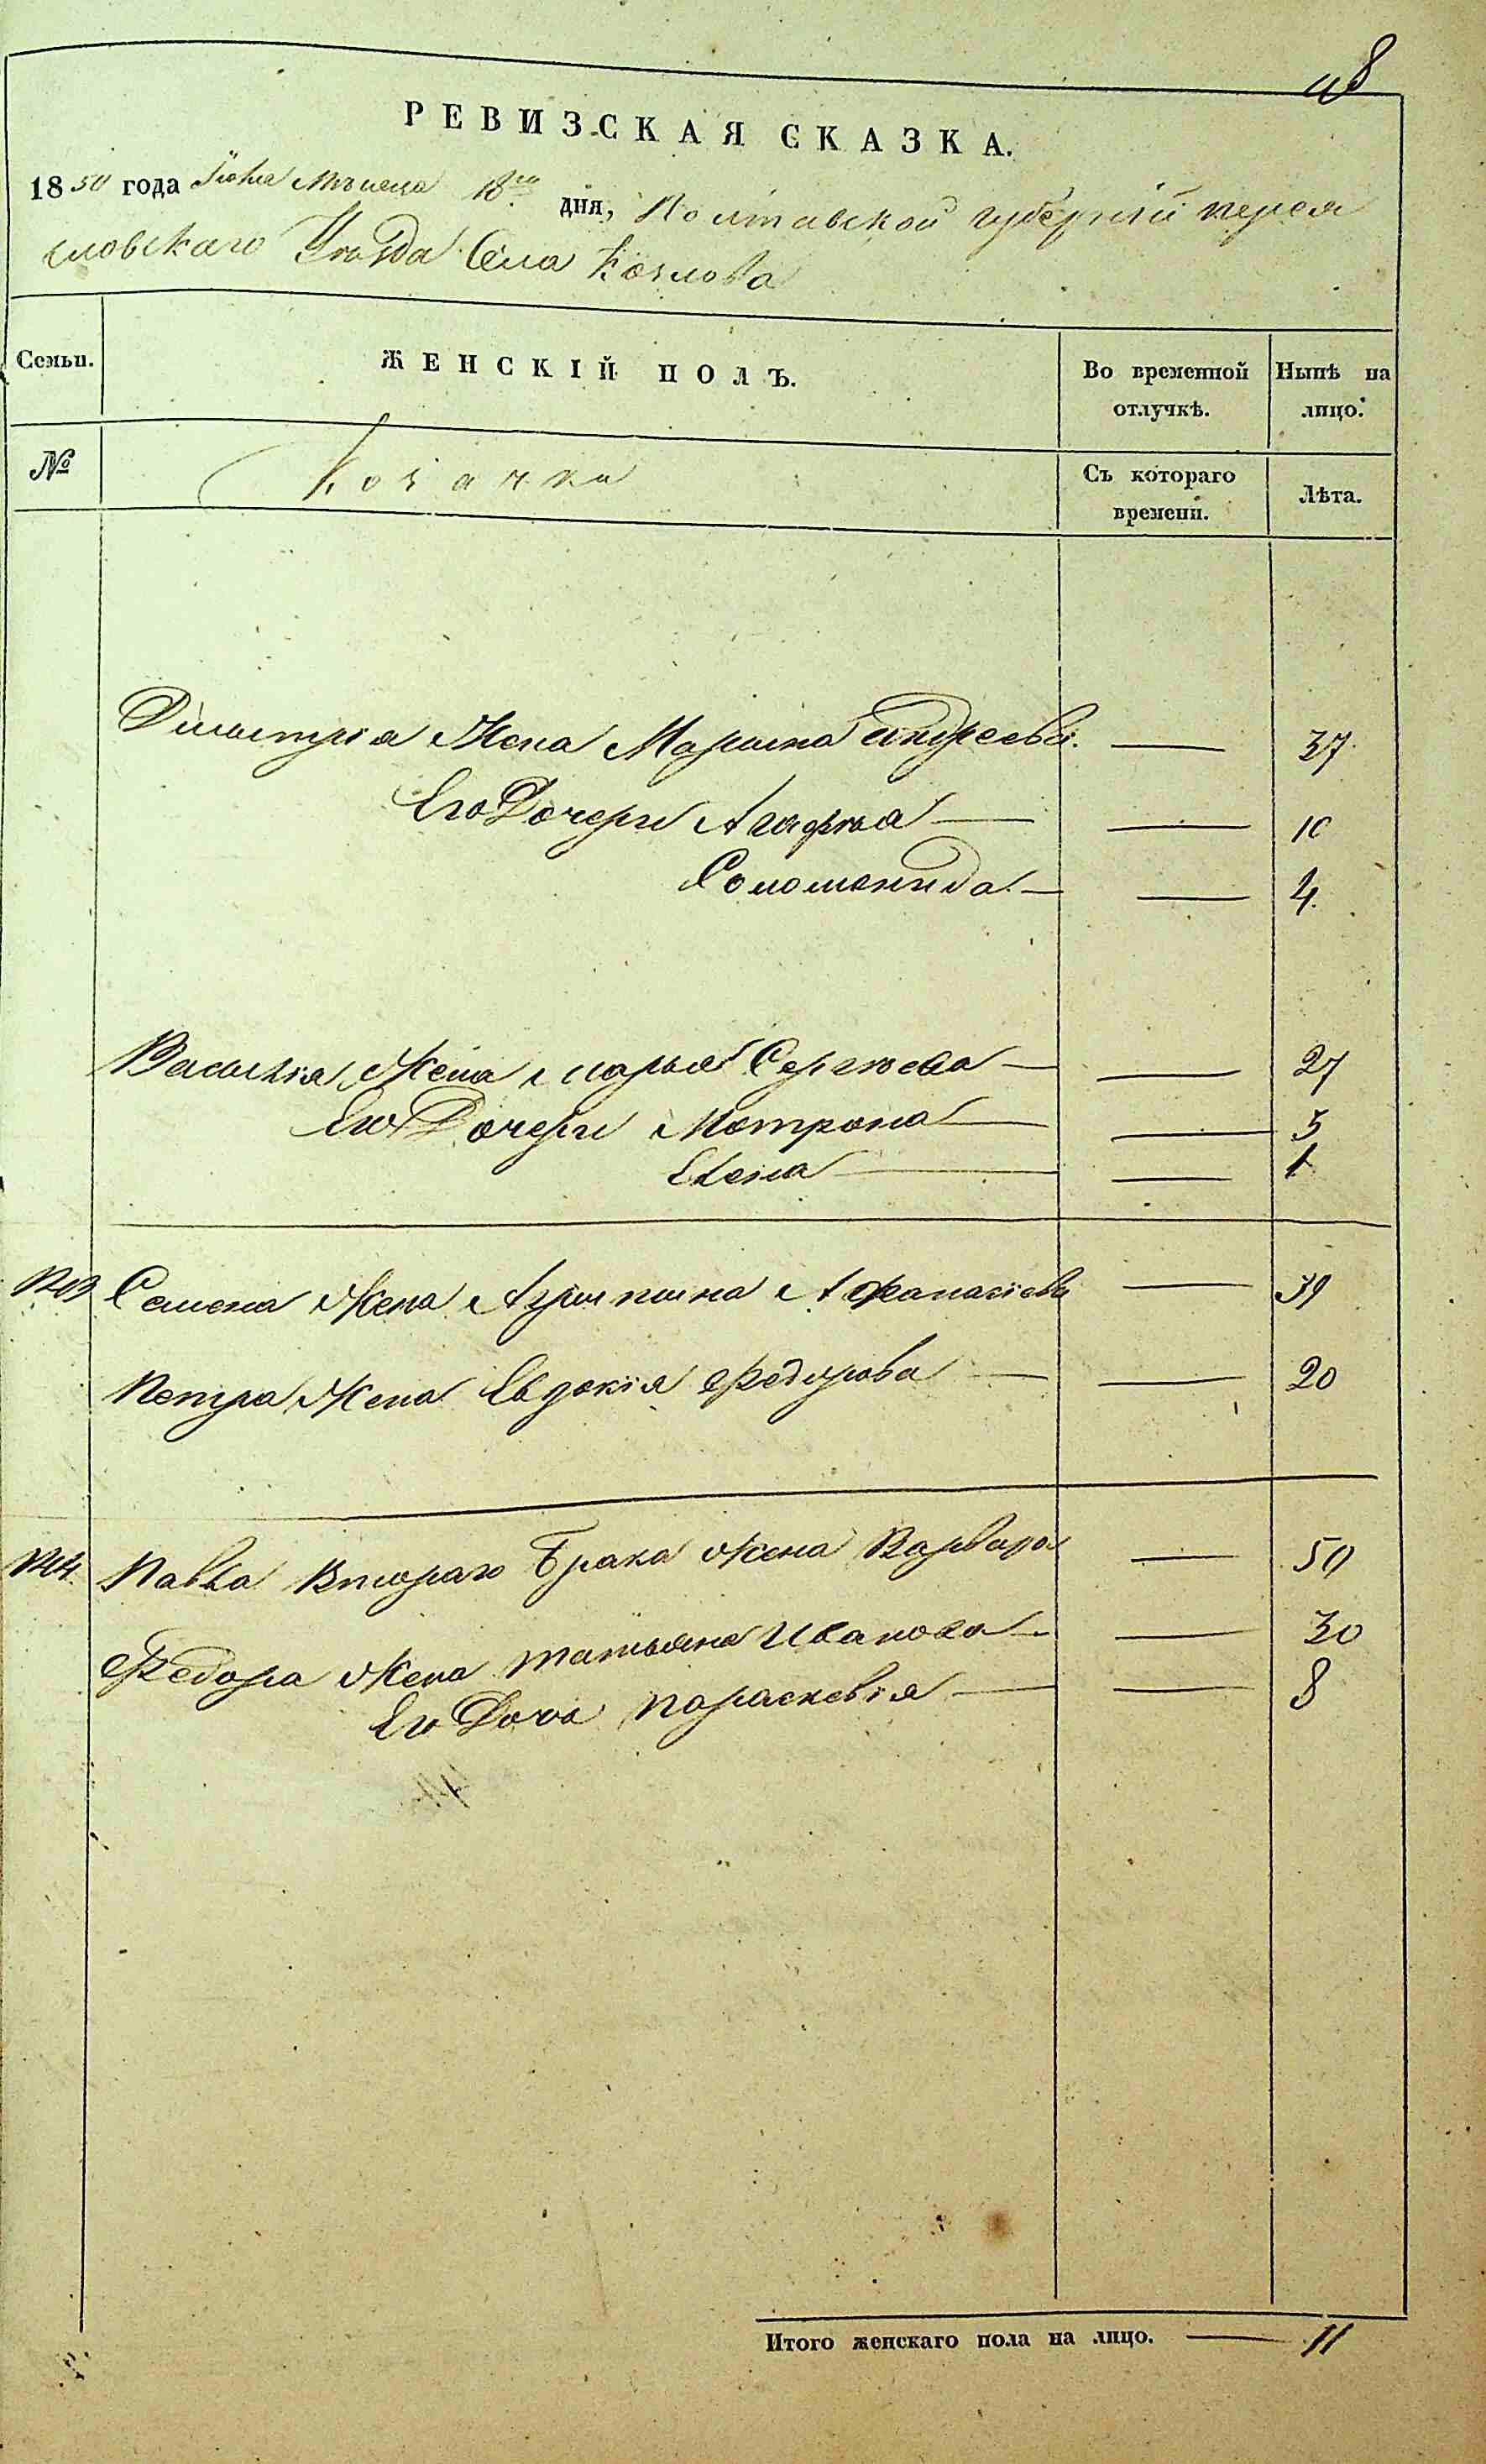 48
РЕВИЗСКАЯ СКАЗКА.
1850 года Июня Мѣсяца 18го дня, Полтавской губерніи перея
словскаго Уѣзда Села Козлова
Семьи.
ЖЕНСКІЙ ПОЛЪ.
Во временной отлучкѣ.
Нынѣ на лицо.
№
Козачки
Съ котораго времени.
Лѣта.
Димитрія Жена Марина Андреева. — 37
Его Дочери Агафія — — 10
Соломонида — — 4.
Василія Жена Марья Сергѣева — — 27
Его Дочери Мотрона — — 5
Елена — — 1
Семена Жена Агрипина Афанасіева — 39
Петра Жена Евдокія Федорова — — 20
Павла Втораго Брака Жена Варвара — 50
Федора Жена татьяна Иванова — — 30
Его Дочь параскевія — — 8
Итого женскаго пола на лицо. — 11